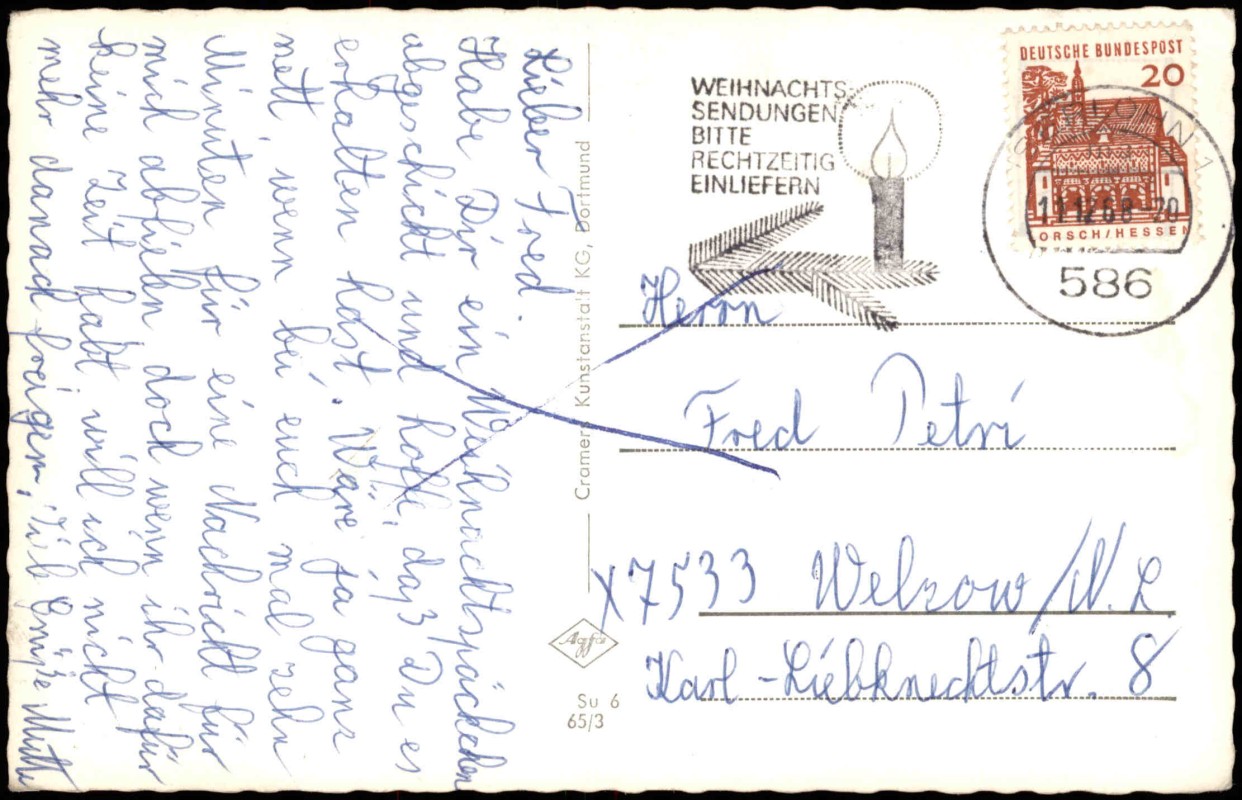 Lieber Fred.
Habe Dir ein Weihnachtspäckchen
abgeschickt und hoffe, daß Du es
erhalten hast. Wäre ja ganz
nett, wenn bei euch mal zehn
Minuten für eine Nachricht für
mich abfielen doch wenn ihr dafür
keine Zeit habt will ich nicht
mehr danach fragen, lieb Grüße Mutti
Cramers Kunstanstalt KG, Dortmund
Agfa
Su 6
65/3
WEIHNACHTS-
SENDUNGEN
BITTE
RECHTZEITIG
EINLIEFERN
DEUTSCHE BUNDESPOST
20
LORSCH/HESSEN
ISERLOHN 1
11.12.68-20
586
Herrn
Fred Petri
X7533 Welzow/N.L.
Karl-Liebknechtstr. 8